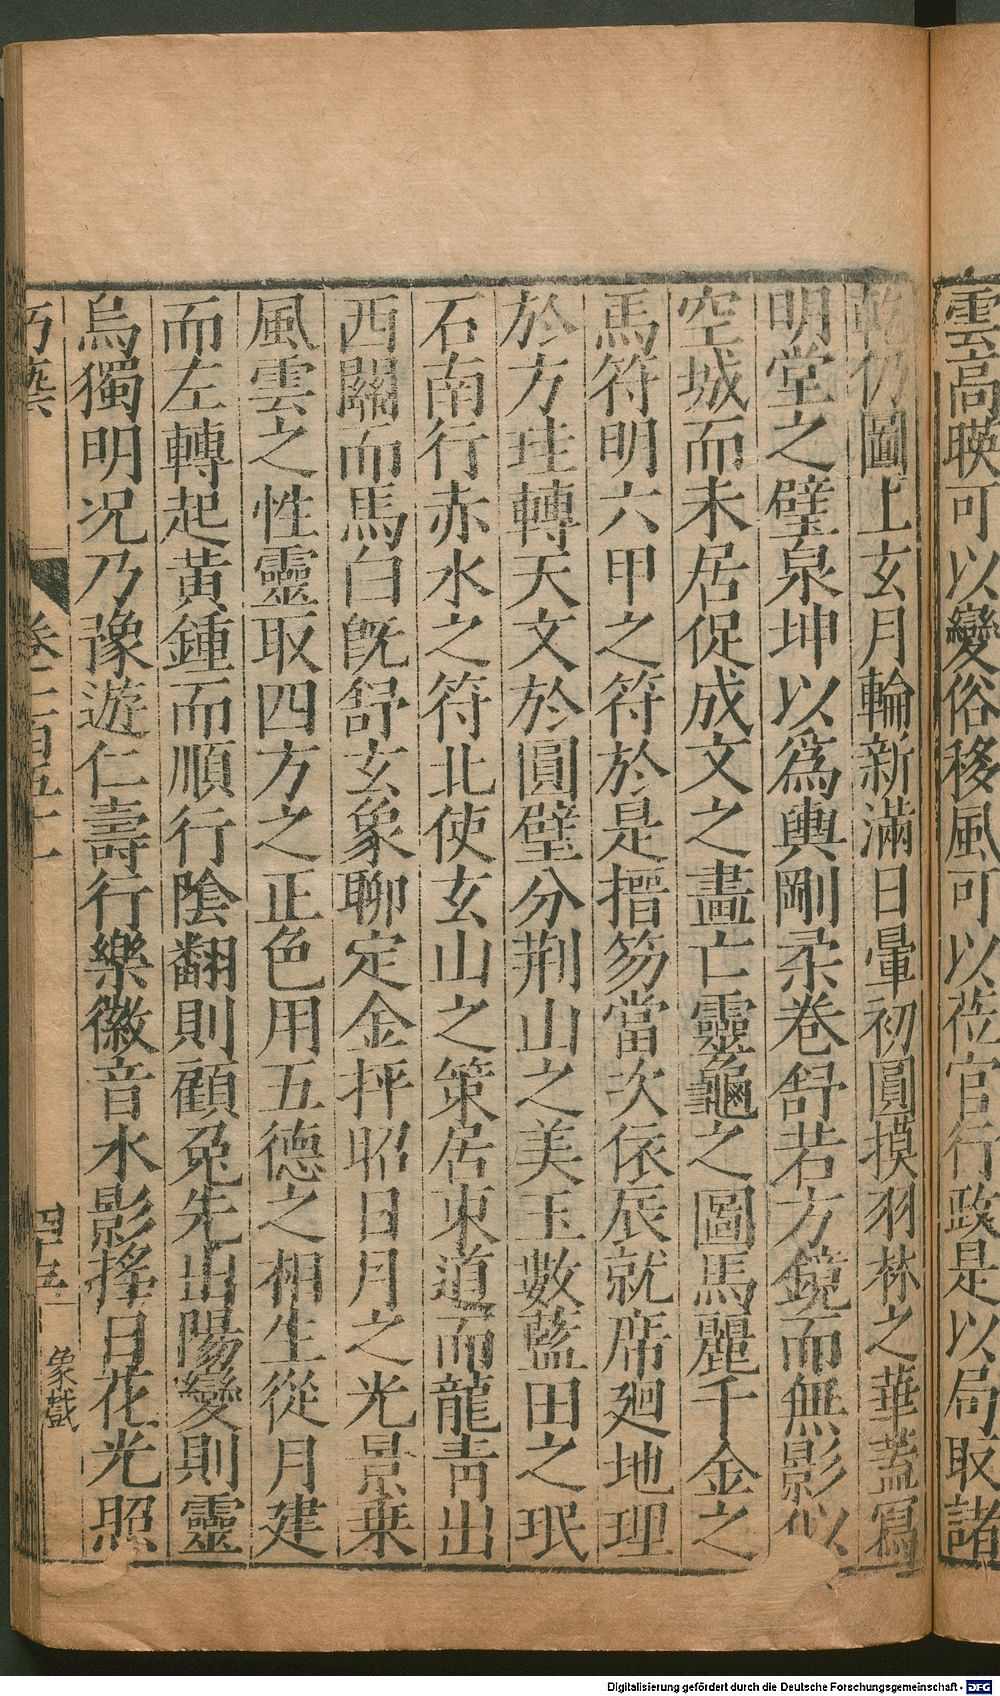 雲高暎可以變俗移風可以蒞官行政是以局取諸
乾仍圖上玄月輪新滿日暈初圓摸羽林之華蓋寫
明堂之璧泉坤以為輿剛柔卷舒若方鏡而無影似
空城而未居促成文之畫亡靈龜之圖馬麗千金之
馬符明六甲之符於是搢笏當次依辰就席廻地理
於方珪轉天文於圓璧分荆山之美玉數藍田之珉
石南行赤水之符北使玄山之策居東道而龍青出
西關而馬白旣舒玄象聊定金抨昭日月之光景乗
風雲之性靈取四方之正色用五德之相生從月建
而左轉起黃鍾而順行陰翻則顧兔先出陽變則靈
烏獨明况乃豫遊仁壽行樂徽音水影搖日花光照
卷二百五十一
四十五
象戲
Digitalisierung gefördert durch die Deutsche Forschungsgemeinschaft - DFG